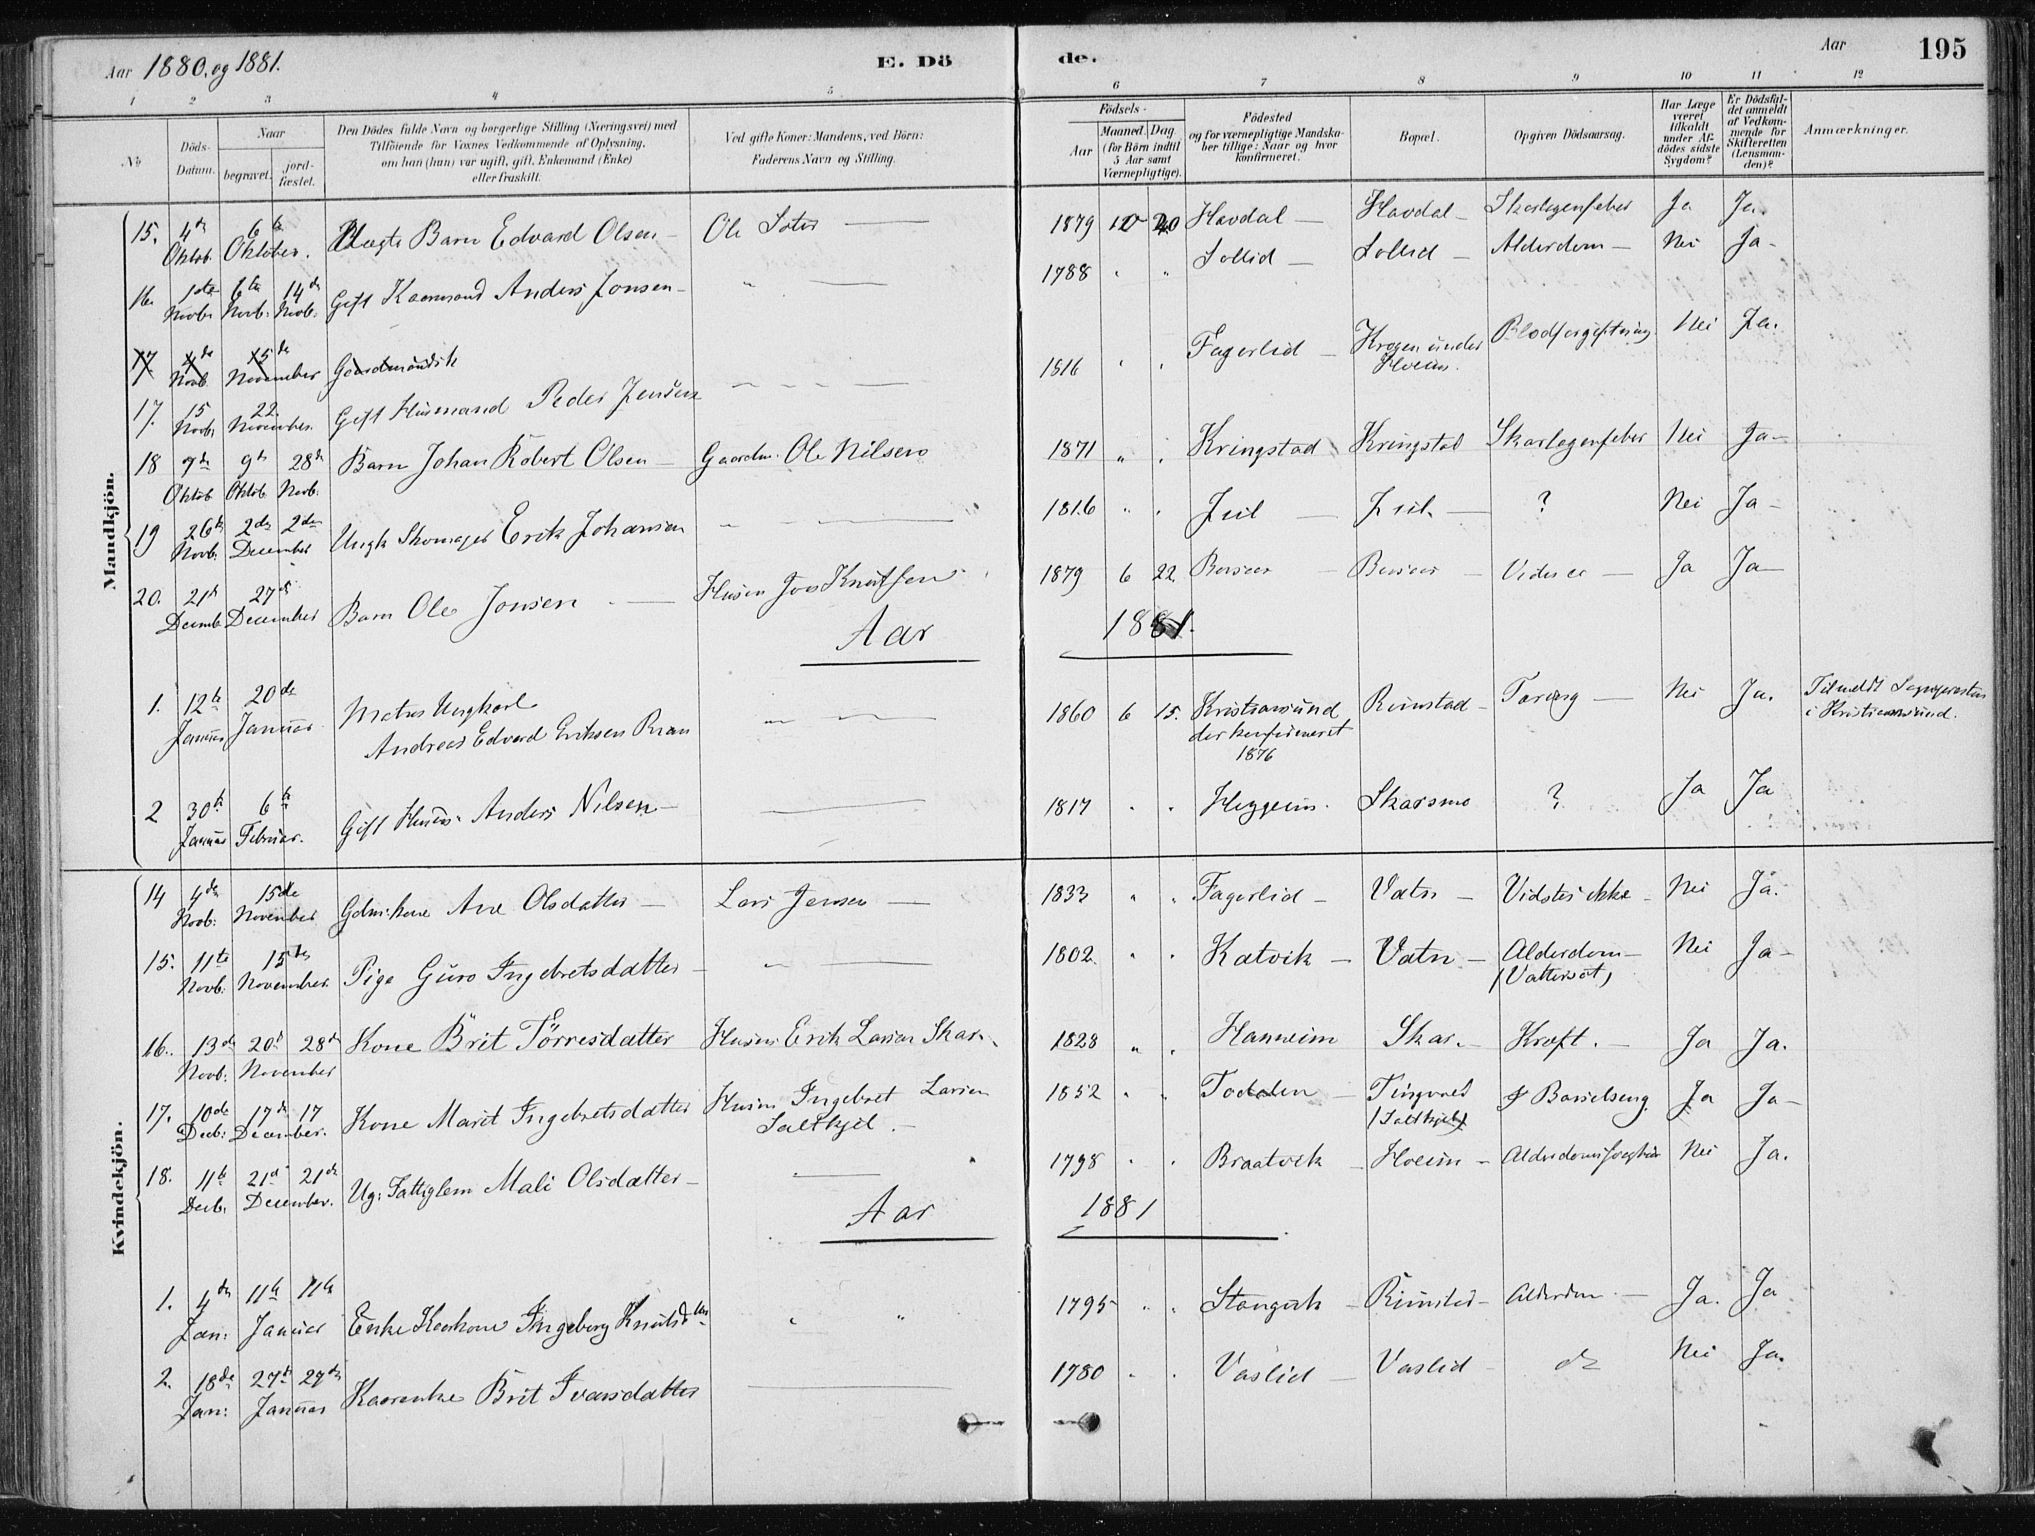 Aar 1880. og 1881.
E. Dö
de.
Aar
195
1 2 3 4 5 6 7 8 9 10 11 12
No
Döds-Datum.
Naar
begravet.
jord-fæstet.
Den Dödes fulde Navn og borgerlige Stilling (Næringsvei) med
Tilföiende for Voxnes Vedkommende af Oplysning,
om han (hun) var ugift, gift, Enkemand (Enke)
eller fraskilt.
Ved gifte Koner: Mandens, ved Börn:
Faderens Navn og Stilling.
Födsels-
Aar
Maaned. Dag
(for Börn indtil
5 Aar samt
Værnepligtige).
Födested
og for værnepligtige Mandska-
ber tillige: Naar og hvor
konfirmeret.
Bopæl.
Opgiven Dödsaarsag.
Har Læge
været
tilkaldt
under Af-
dödes sidste
Sygdom?
Er Dödsfal-
det anmeldt
af Vedkom-
mende for
Skifteretten
(Lensman-
den)?
Anmærkninger.
Mandkjön.
15. 4de Oktob. 6te Oktober. Barn Edvard Olsen Ole 1879 10 20 Havdal Havdal Skarlagenfeber Ja Ja.
16. 1ste Novb. 6te Novb. 14de Novb. Gift Kaarmand Anders Jonsen 1788 Sollid Sollid Alderdom Nei Ja
17 4de Novb. 15de November Gaardmands
17. 15 Novb. 22. November. Gift Husmand Peder Jensen 1816 Fagerlid Krogen under Hoem. Blodforgiftning Nei Ja.
18 9de Oktob. 9de Oktob. 28de Novb. Barn Johan Robert Olsen Gaardm. Ole Nilsen 1871 Kringstad Kringstad Skarlagenfeber Nei Ja
19 26te Novb. 2den 2den December Ungk. Skomager Erik Johansen 1816 ? Nei Ja
20. 21de Decemb. 27de December Barn Ole Jonsen Husm. Knutsen 1879 6 22 Ja Ja
Aar 1881.
1. 12te Januar 20de Januar Matros Ungkarl
Andreas Edvard Eriksen 1860 6 15. Kristiansund
der konfirmeret
1876 Rimstad Nei Ja. Tilmeldt
i Kristiansund.
2 30te Januar 6te Februar. Gift Husm. Anders Nilsen 1817 Heggeim. Skarsmo ? Ja Ja
Kvindekjön.
14 4de Novb. 15de November Gdm: kone Ane Olsdatter Lars Jensen 1833 Fagerlid Vatn Vidstes ikke Nei Ja.
15. 11te Novb. 15de November. Pige Guro Ingebretsdatter 1802. Katvik Vatn Alderdom Nei Ja
16. 13de Novb. 20de 28de November Kone Brit Törresdatter Husm. Erik Larsen Skar. 1828 Hanneim Skar. Kræft. Ja Ja.
17. 10de Decb. 17de 17 December. Kone Marit Ingebretsdatter Husm Ingebret Larsen
Saltkjel. 1852 Todalen Tingvold
(Saltkjel) Barselseng. Ja Ja
18. 11te Decb. 21de 21de December. Ug: Fattiglem Mali Olsdatter 1798 Braatvik Hoem Nei Ja.
Aar 1881
1. 4de Jan: 11te 11te Januar Enke Kaarkone Ingeborg 1795 Stangvik Rimstad Alderdom Ja. Ja
2. 18de Jan: 27de 27de Januar Kaarenke Brit Ivarsdatter 1780 Vaslid Vaslid do Nei Ja.